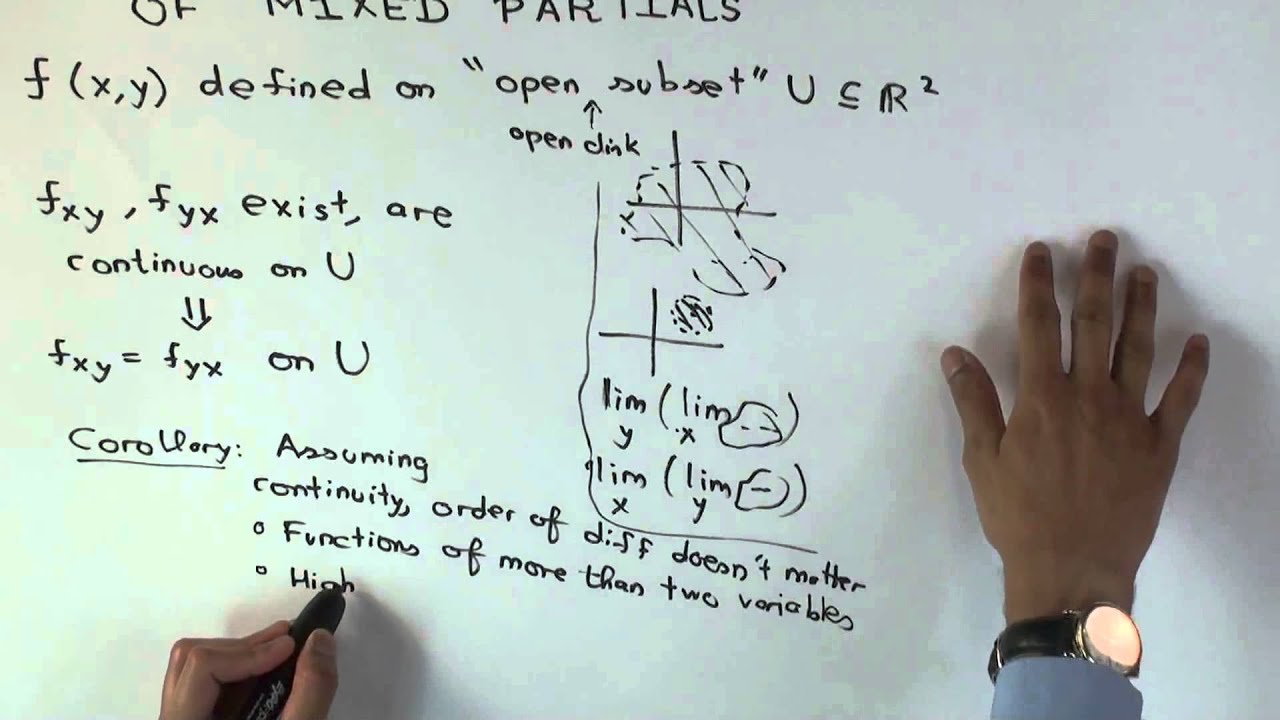 OF MIXED PARTIALS
f(x,y) defined on "open subset" U ⊆ ℝ²
↑
open disk
f_xy, f_yx exist, are
continuous on U
⇓
f_xy = f_yx on U
lim_y (lim_x --)
lim_x (lim_y -)
Corollary: Assuming
continuity, order of diff doesn't matter
∘ Functions of more than two variables
∘ High